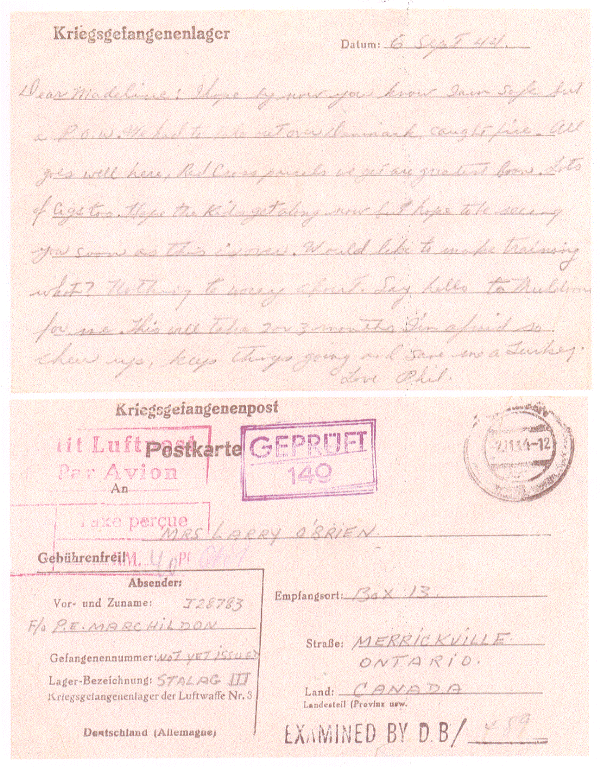 Kriegsgefangenenlager
Datum: 6 Sept 44.
Dear Madeline: Hope by now you know I am safe but
a P.O.W. We had to bale out over Denmark, caught fire. All
goes well here, Red Cross parcels we get are greatest boon. Lots
of Cigs too. Hope the Kids get along now & I hope to be seeing
you soon as this is over. Would like to make training
what? Nothing to worry about. Say hello to
for me. This will take 2 or 3 months I'm afraid so
cheer up, keep things going and save me a Turkey.
Love Phil.
Kriegsgefangenenpost
Mit Luftpost
Par Avion
Postkarte
GEPRÜFT
149
An
Taxe perçue
MRS LARRY O'BRIEN
Gebührenfrei!
Absender:
Vor- und Zuname: J28783
F/o P.E. MARCHILDON
Gefangenennummer: NOT YET ISSUED
Lager-Bezeichnung: STALAG III
Kriegsgefangenenlager der Luftwaffe Nr. 3
Deutschland (Allemagne)
Empfangsort: BOX 13.
Straße: MERRICKVILLE
ONTARIO.
Land: CANADA
Landesteil (Provinz usw.
EXAMINED BY D.B/